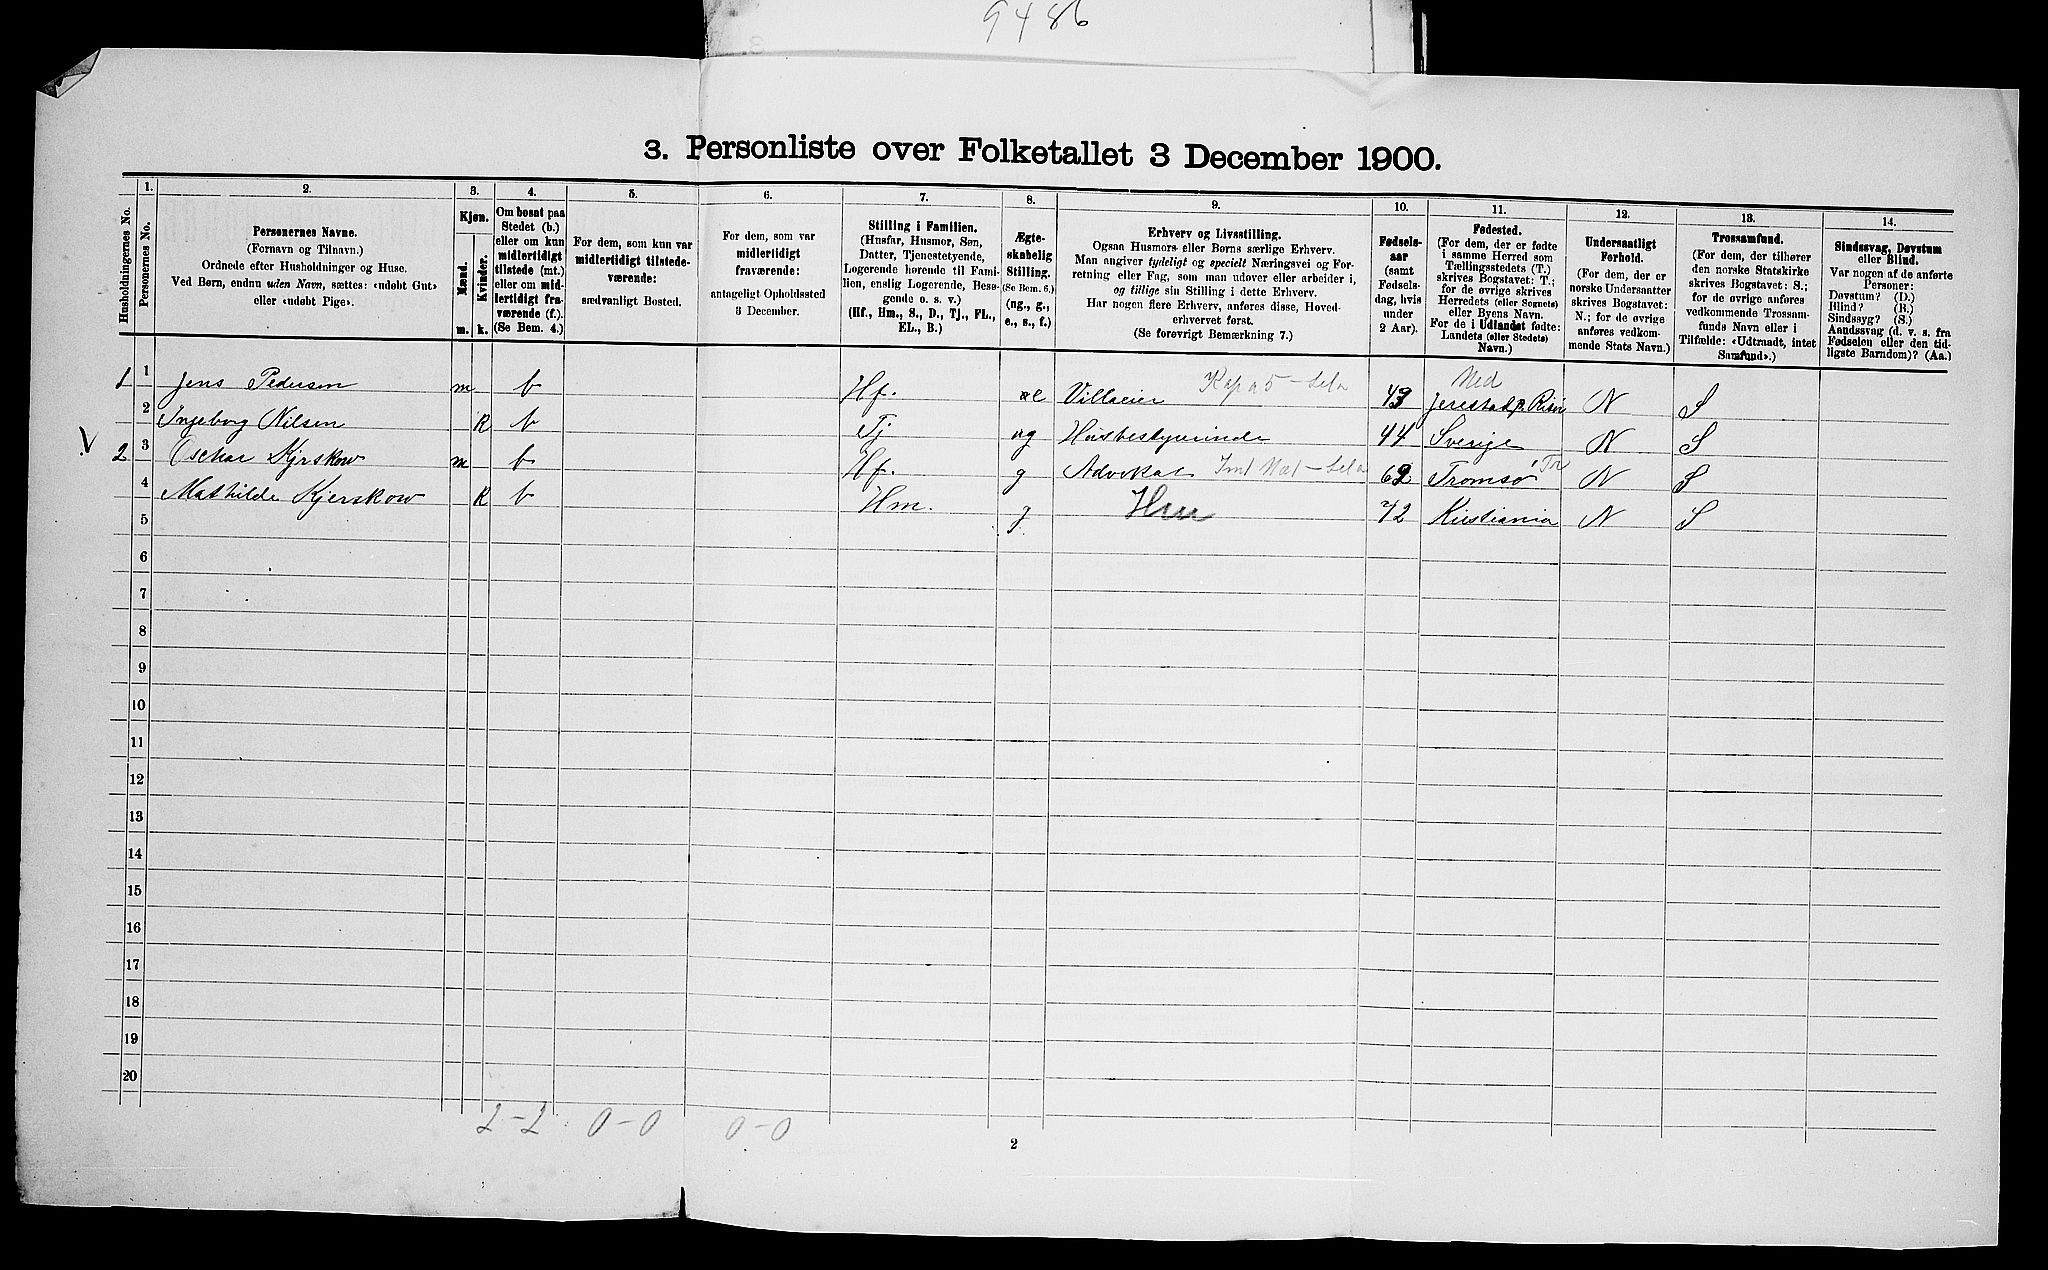 9486
3. Personliste over Folketallet 3 December 1900.
Husholdningernes No.
1.
Personernes No.
2.
Personernes Navne.
(Fornavn og Tilnavn.)
Ordnede efter Husholdninger og Huse.
Ved Børn, endnu uden Navn, sættes: «udøbt Gut»
eller «udøbt Pige».
3.
Kjøn.
Mænd.
Kvinder.
m. k.
4.
Om bosat paa
Stedet (b.)
eller om kun
midlertidigt
tilstede (mt.)
eller om mid-
lertidigt fra-
værende (f.).
(Se Bem. 4.)
5.
For dem, som kun var
midlertidigt tilstede-
værende:
sædvanligt Bosted.
6.
For dem, som var
midlertidigt
fraværende:
antageligt Opholdssted
3 December.
7.
Stilling i Familien.
(Husfar, Husmor, Søn,
Datter, Tjenestetyende,
Logerende hørende til Fami-
lien, enslig Logerende, Besø-
gende o. s. v.)
(Hf., Hm., S., D., Tj., FL.,
EL., B.)
8.
Ægte-
skabelig
Stilling.
(Se Bem. 6.)
(ug., g.,
e., s., f.)
9.
Erhverv og Livsstilling.
Ogsaa Husmors eller Børns særlige Erhverv.
Man angiver tydeligt og specielt Næringsvei og For-
retning eller Fag, som man udøver eller arbeider i,
og tillige sin Stilling i dette Erhverv.
Har nogen flere Erhverv, anføres disse, Hoved-
erhvervet først.
(Se forøvrigt Bemærkning 7.)
10.
Fødsels-
aar
(samt
Fødsels-
dag, hvis
under
2 Aar).
11.
Fødested.
(For dem, der er fødte
i samme Herred som
Tællingsstedets (T.)
skrives Bogstavet: T.;
for de øvrige skrives
Herredets (eller Sognets)
eller Byens Navn.
For de i Udlandet fødte:
Landets (eller Stedets)
Navn.)
12.
Undersaatligt
Forhold.
(For dem, der er
norske Undersaatter
skrives Bogstavet:
N.; for de øvrige
anføres vedkom-
mende Stats Navn.)
13.
Trossamfund.
(For dem, der tilhører
den norske Statskirke
skrives Bogstavet: S.;
for de øvrige anføres
vedkommende Trossam-
funds Navn eller i
Tilfælde: «Udtraadt, intet
Samfund».)
14.
Sindssvag, Døvstum
eller Blind.
Var nogen af de anførte
Personer:
Døvstum? (D.)
Blind? (B.)
Sindssyg? (S.)
Aandssvag (d. v. s. fra
Fødselen eller den tid-
ligste Barndom)? (Aa.)
1 1 Jens Pedersen m b Hf. e Villaeier 43 Jerestad p. Risør N S
2 Ingeborg Nilsen K b Tj ug Husbestyrerinde 44 Sverige N S
V 2 3 Oschar Kjerskow m b Hf. g Advokat 62 Tromsø N S
4 Mathilde Kjerskow K b Hm. g 72 Kristiania N S
5
6
7
8
9
10
11
12
13
14
15
16
17
18
19
20
2-2 0-0 0-0
2